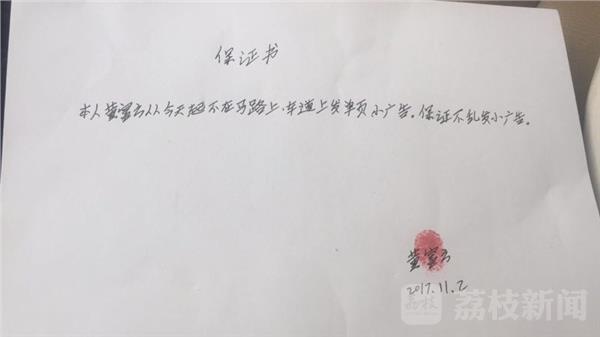 保证书
本人黄蜜云从今天起不在马路上.车道上发单页小广告。保证不乱发小广告。
黄蜜云
2017.11.2
荔枝
荔枝新闻